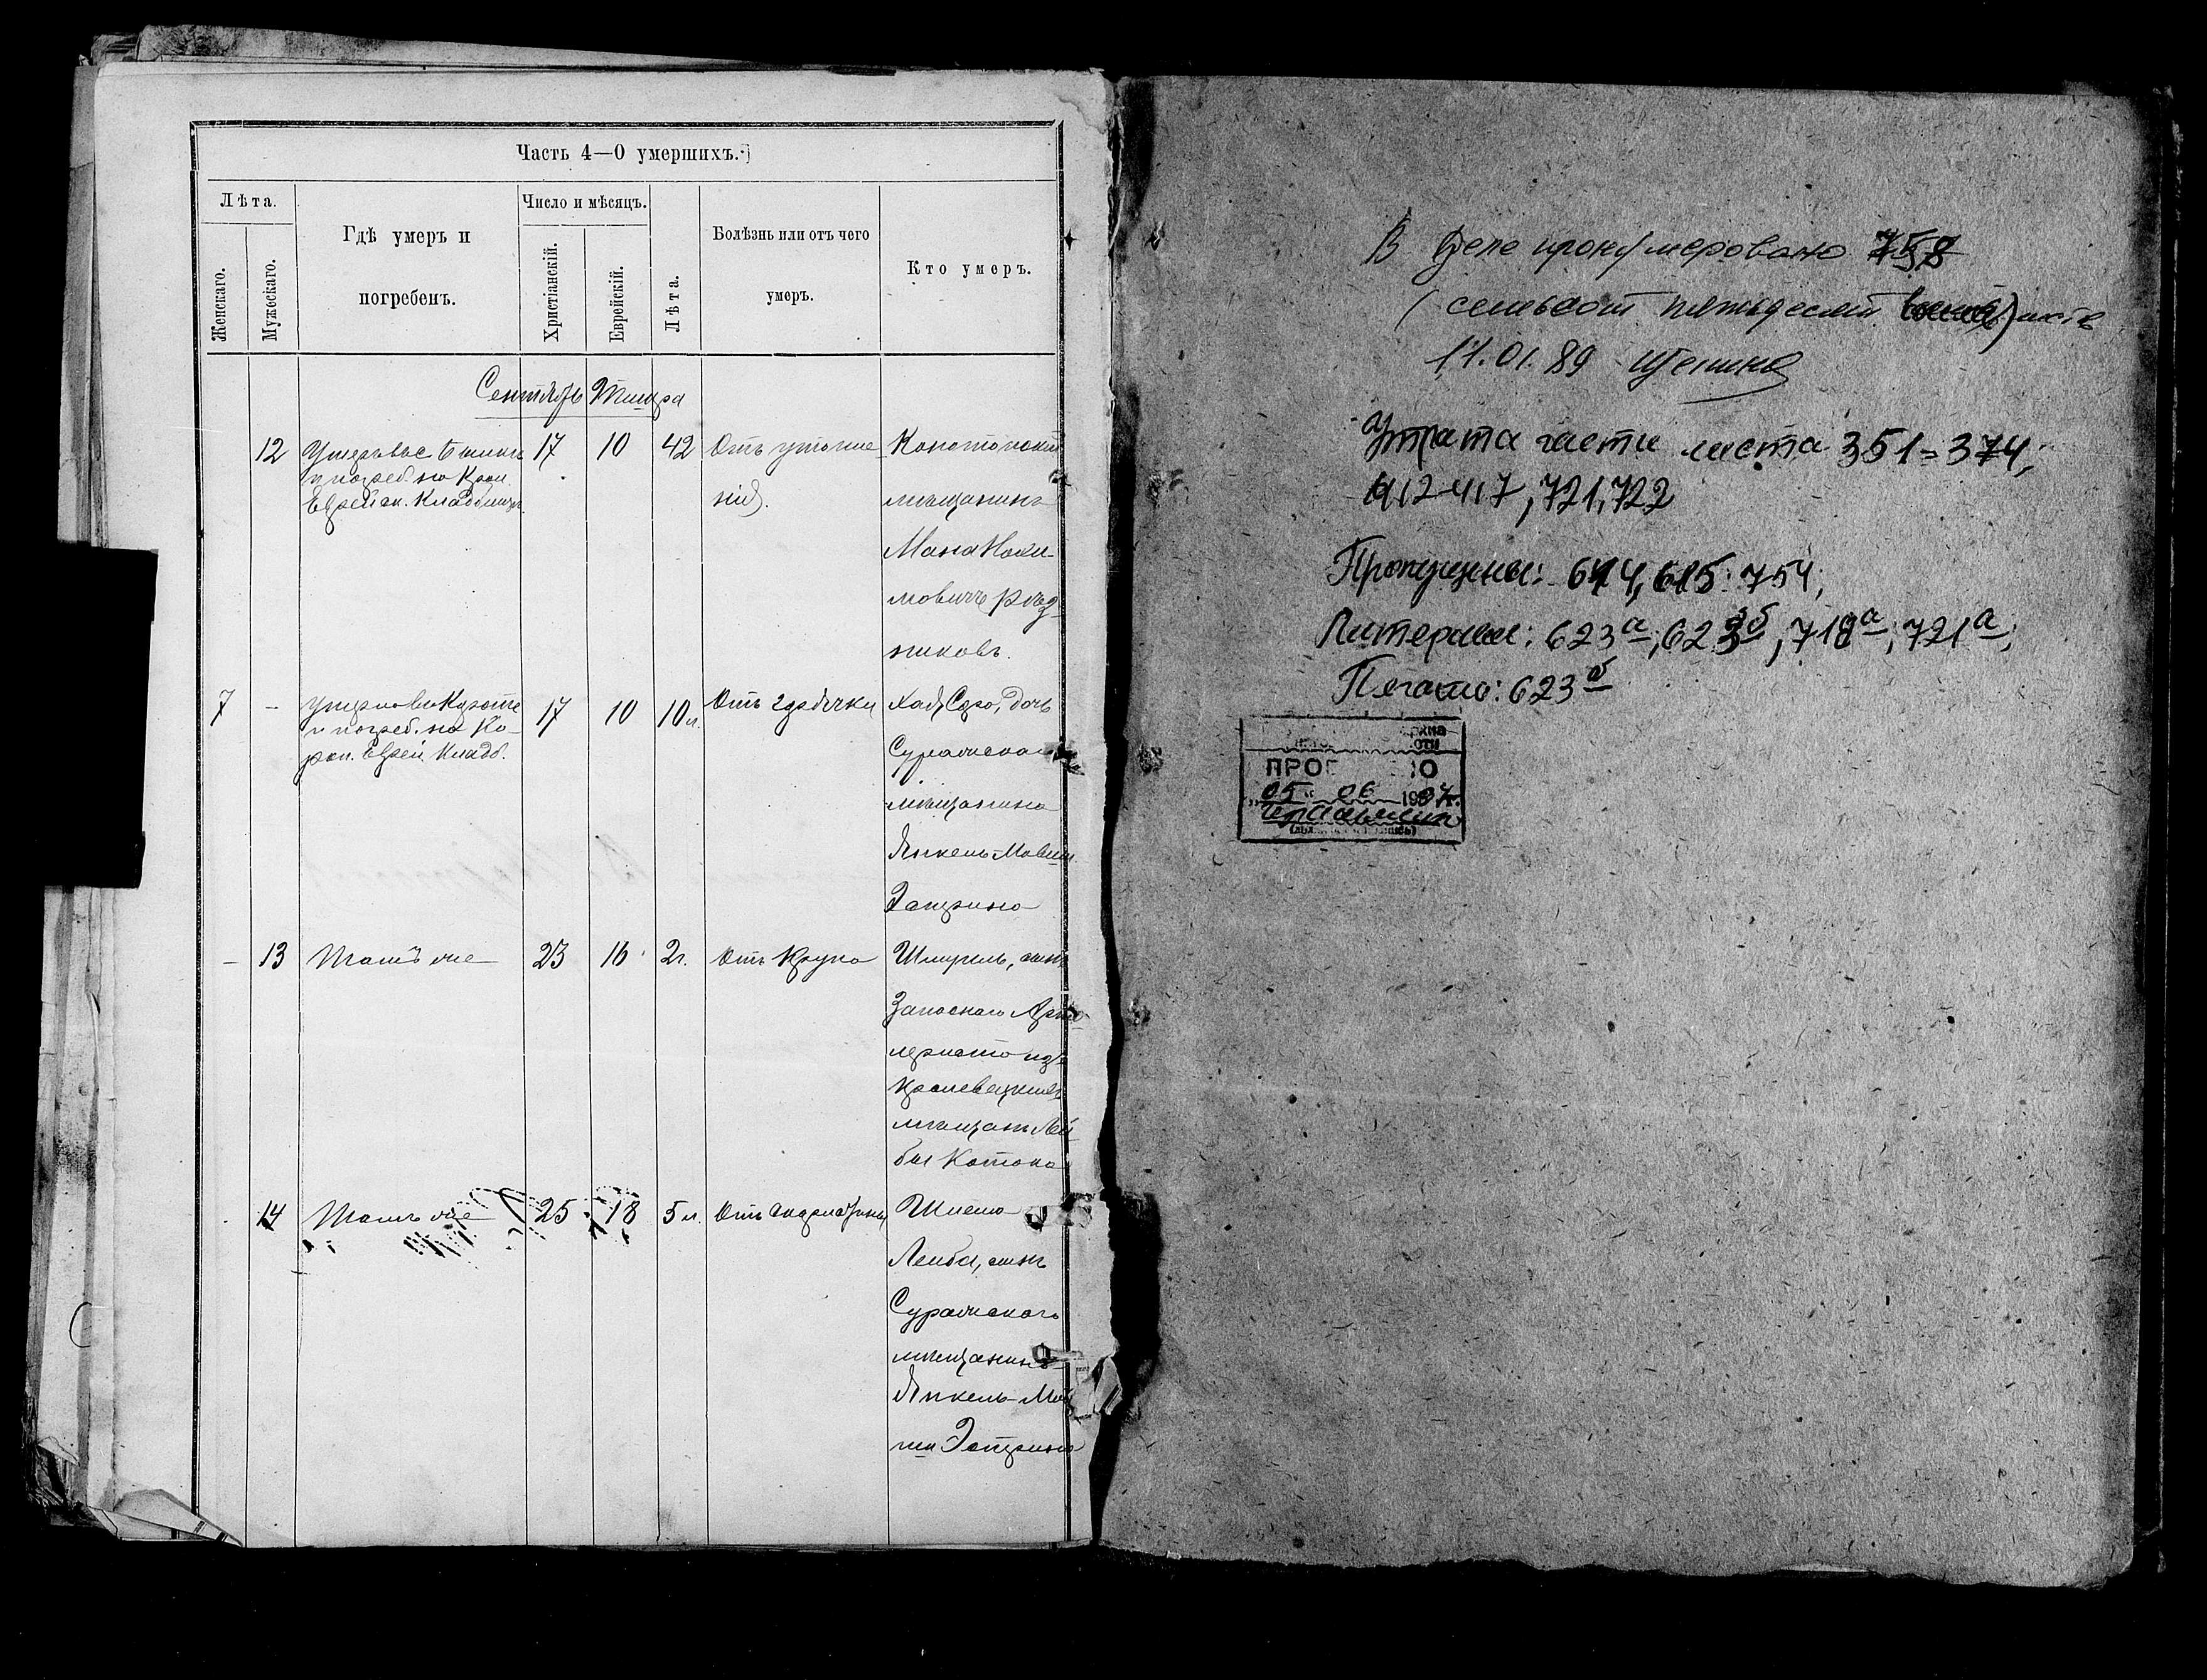 Часть 4—О умершихъ.
Лѣта.
Женскаго.
Мужескаго.
Гдѣ умеръ и
погребенъ.
Число и мѣсяцъ.
Христіанскій.
Еврейскій.
Лѣта.
Болѣзнь или отъ чего
умеръ.
Кто умеръ.
Сентябрь Тишра
12
погреб. на Крол.
Еврейск. Кладбищѣ
17
10
42
Отъ утопле
нія.
Конотопскій
мѣщанинъ
мовичъ Рѣз
никовъ.
7
-
и погреб. на Ко-
роп. Еврей. Кладб.
17
10
10 л.
Отъ горячки
Сора, дочь
Суражскаго
мѣщанина
Янкель Мовши
Эстрина
-
13
Тамъ же
23
16
2 г.
Отъ Крупа
Шмуиль, сынъ
Запаснаго Арти
лериста изъ
Кролевецкихъ
мѣщанъ Лей
бы Котока
14
Тамъ же
25
18
5 л.
Отъ скарлатины
Шлема
Лейба, сынъ
Суражскаго
мѣщанина
Янкель-Мов
ши Эстрина
В деле пронумеровано 758
(семьсот пятьдесят восемь) листов
11.01.89
Утрата части листа 351-374,
412-417, 721, 722
Пропущены: 614, 615, 754;
Литерные: 623а, 623б, 718а, 721а;
Печать: 623б
ПРО О
"05" 06 199